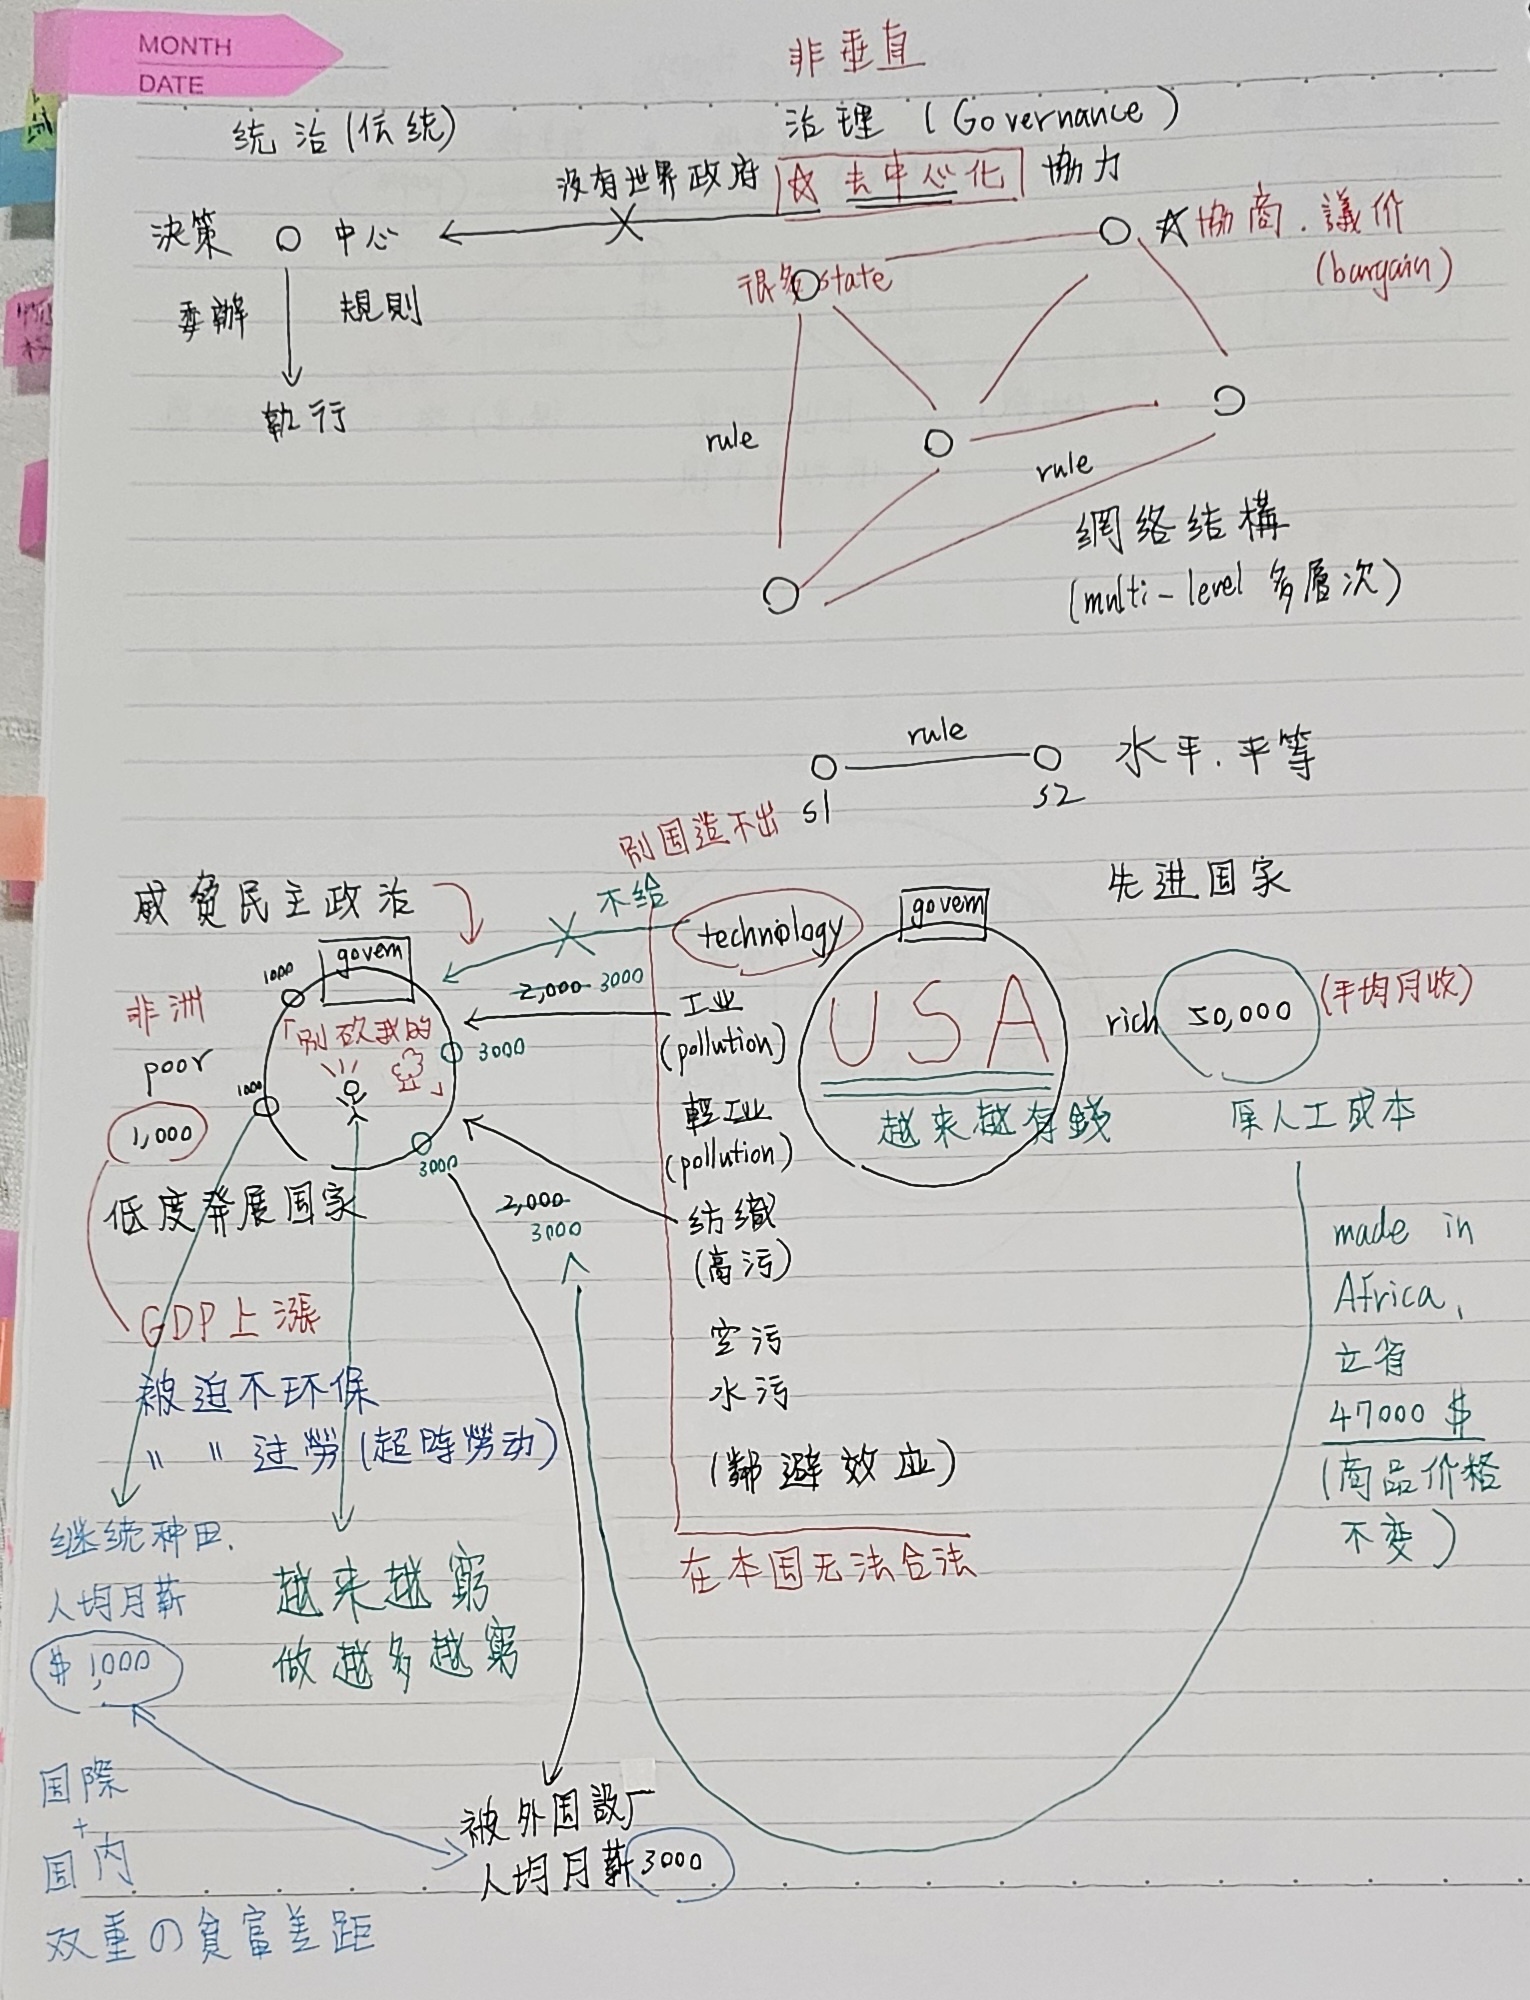 MONTH
DATE
非垂直
統治(伝統)
治理 (Governance)
没有世界政府 ☆ 去中心化 協力
決策 中心
☆協商.議价
(bargain)
很多state
委辦 規則
執行
rule
rule
網络结構
(multi-level 多層次)
rule
S1 S2
水平.平等
別国造不出
先进国家
威貧民主政治
不给
technology
govern
govern
1000
2,000 3000
非洲
poor
「別砍我的
」
3000
工业
(pollution)
USA
rich 50,000 (平均月收)
1000
1,000
輕工业
(pollution)
越来越有錢
原人工成本
3000
低度発展国家
2,000
3000
纺織
(高污)
made in
Africa,
立省
47000 $
(商品价格
不变)
GDP上漲
空污
水污
被迫不环保
〃 〃 过勞(超時勞动)
(鄰避效应)
继统种田.
人均月薪
$ 1,000
越来越窮
做越多越窮
在本国无法合法
国際
+
国内
被外国設厂
人均月薪3000
双重の貧富差距